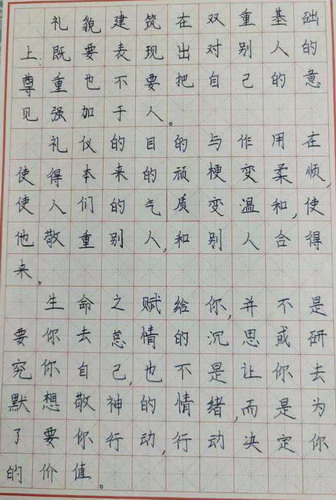 礼貌建筑在双重基础
上既要表现出对别人的
尊重也不要把自己的意
见强加于人。
礼仪的目的与作用在
使得本来的顽梗变柔顺,
使人们的气质变温和,使
他敬重别人,和别人合得
来。
生命之赋给你,并不是
要你去怠情的沉思或研
究你自己,也不是让你去
默想敬神的情绪,而是为
了要你行动,行动决定你
的价值。